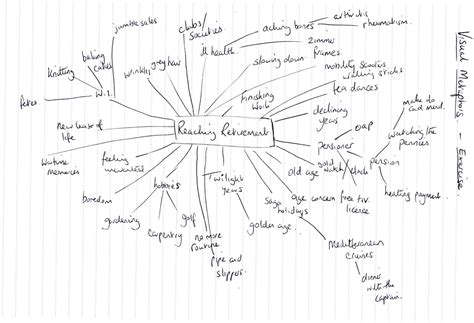 Visual Metaphors - Exercise.
jumble sales
clubs/
societies
aching bones
arthritis
rheumatism.
baking
cakes
grey hair
ill health
zimmer
frames.
knitting
wrinkles
slowing down
mobility scooters
walking sticks
fetes
W.I.
finishing
work
tea dances
make do
and mend.
declining
years
new lease of
life
Reaching Retirement
OAP
watching the
pennies
pensioner
wartime
memories
feeling
unwanted
old age
gold
watch / clock
pension
heating payment.
boredom
hobbies
Twilight
years
saga
holidays
age concern
free t.v.
licence
gardening
golf
golden age.
carpentry
no more
routine
Mediterranean
cruises
pipe and
slippers.
dinner
with the
captain.